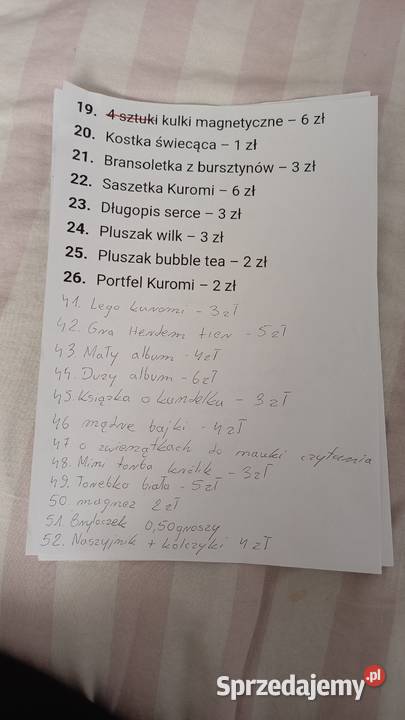 19. 4 sztuki kulki magnetyczne – 6 zł
20. Kostka świecąca – 1 zł
21. Bransoletka z bursztynów – 3 zł
22. Saszetka Kuromi – 6 zł
23. Długopis serce – 3 zł
24. Pluszak wilk – 3 zł
25. Pluszak bubble tea – 2 zł
26. Portfel Kuromi – 2 zł
41. Lego kuromi - 3 zł
42. Gra - 5 zł
43. Mały album - 4 zł
44. Duży album - 6 zł
45. Książka o kundelku - 3 zł
46 mądre bajki - 4 zł
47 o zwierzątkach do nauki czytania
48. Mini torba królik - 3 zł
49. Torebka biała - 5 zł
50 magnez 2 zł
51. Bryloczek 0,50 groszy
52. Naszyjnik + kolczyki 4 zł
Sprzedajemy.pl